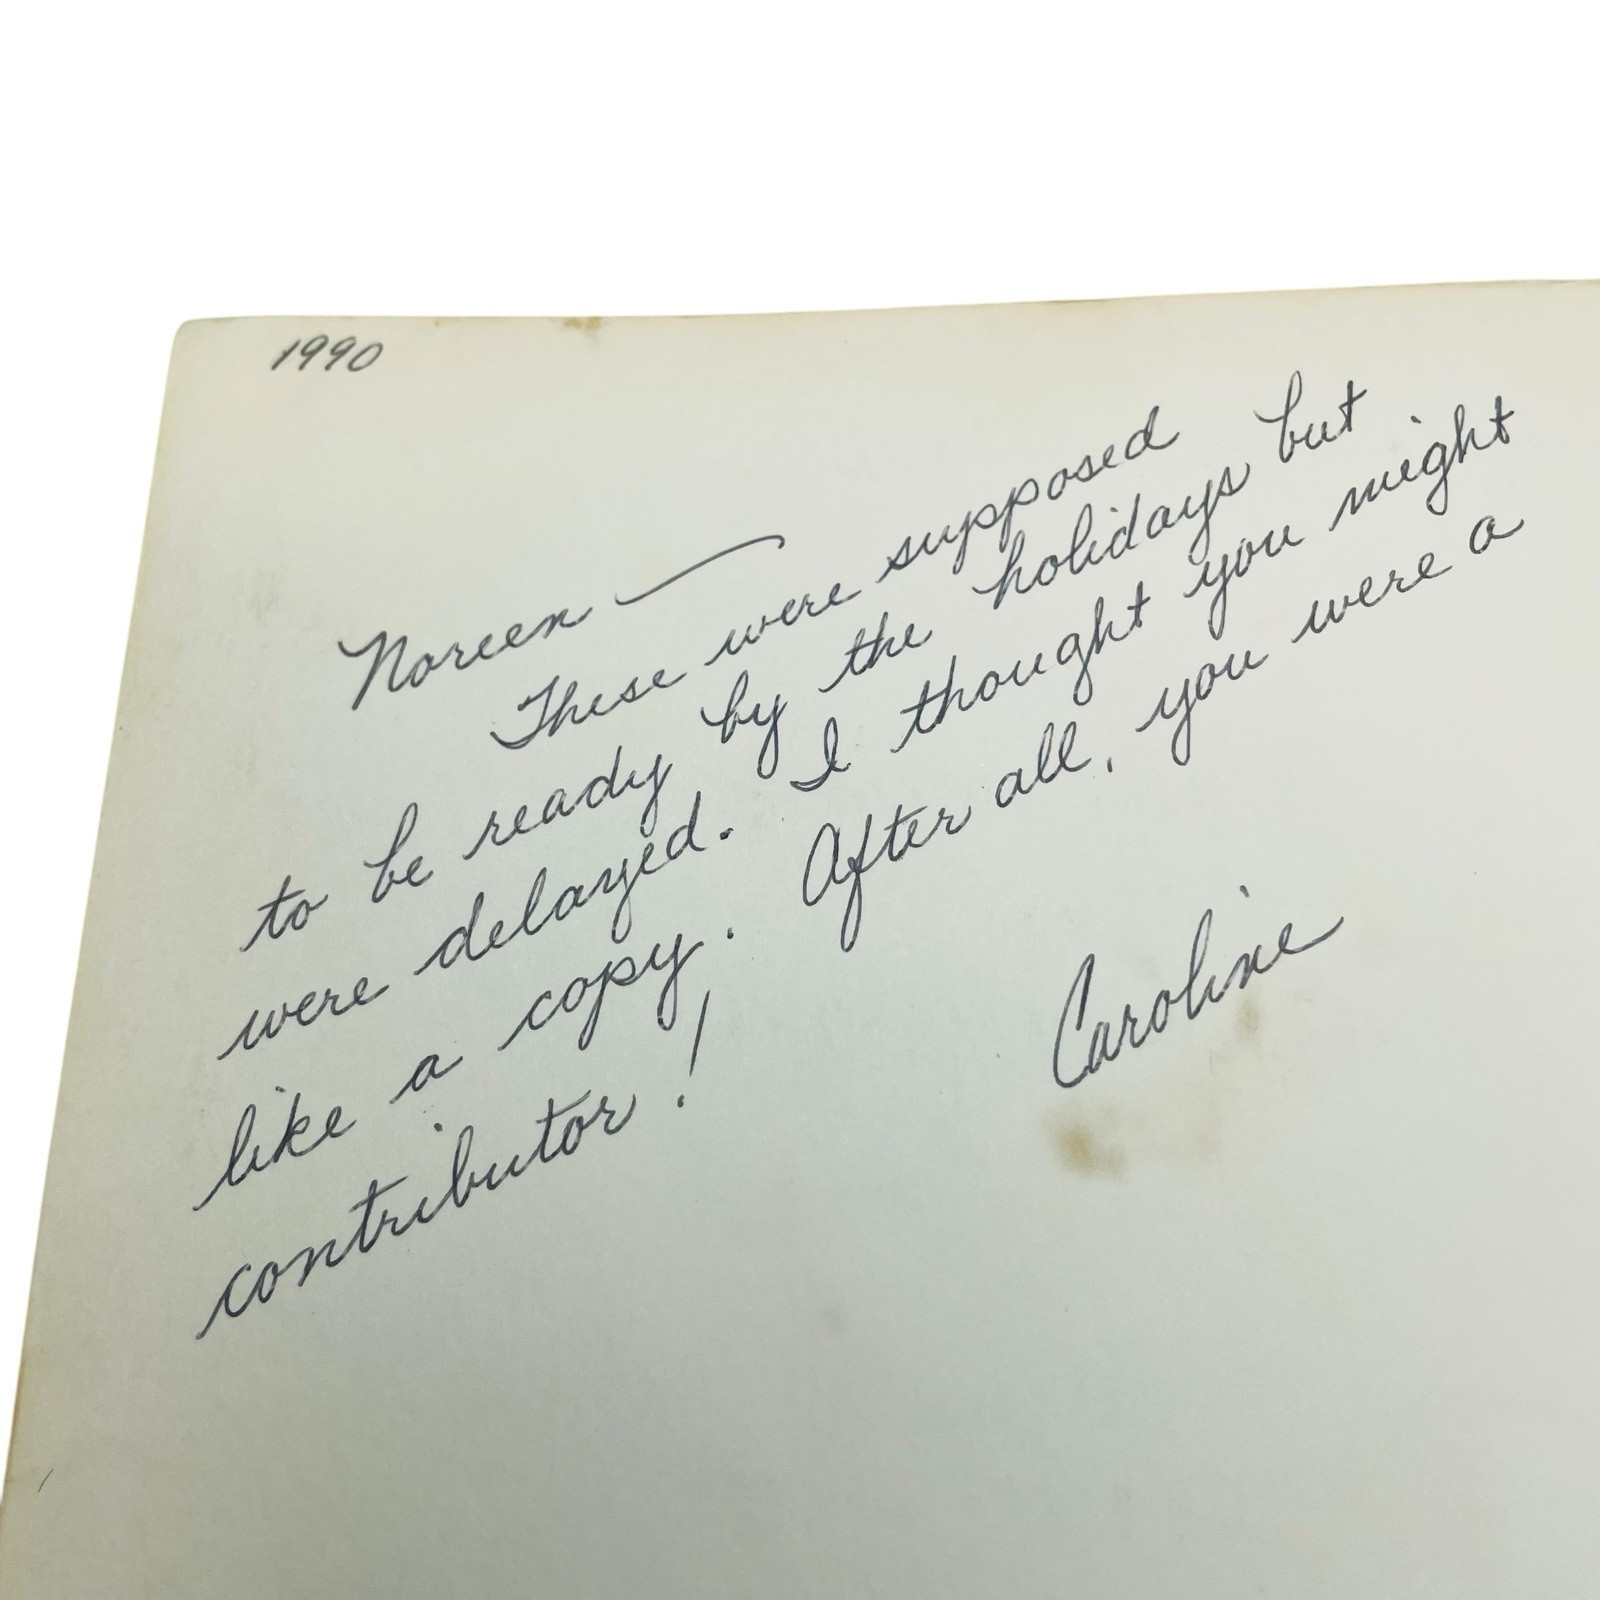 1990
Noreen —
These were supposed
to be ready by the holidays but
were delayed. I thought you might
like a copy. After all, you were a
contributor!
Caroline